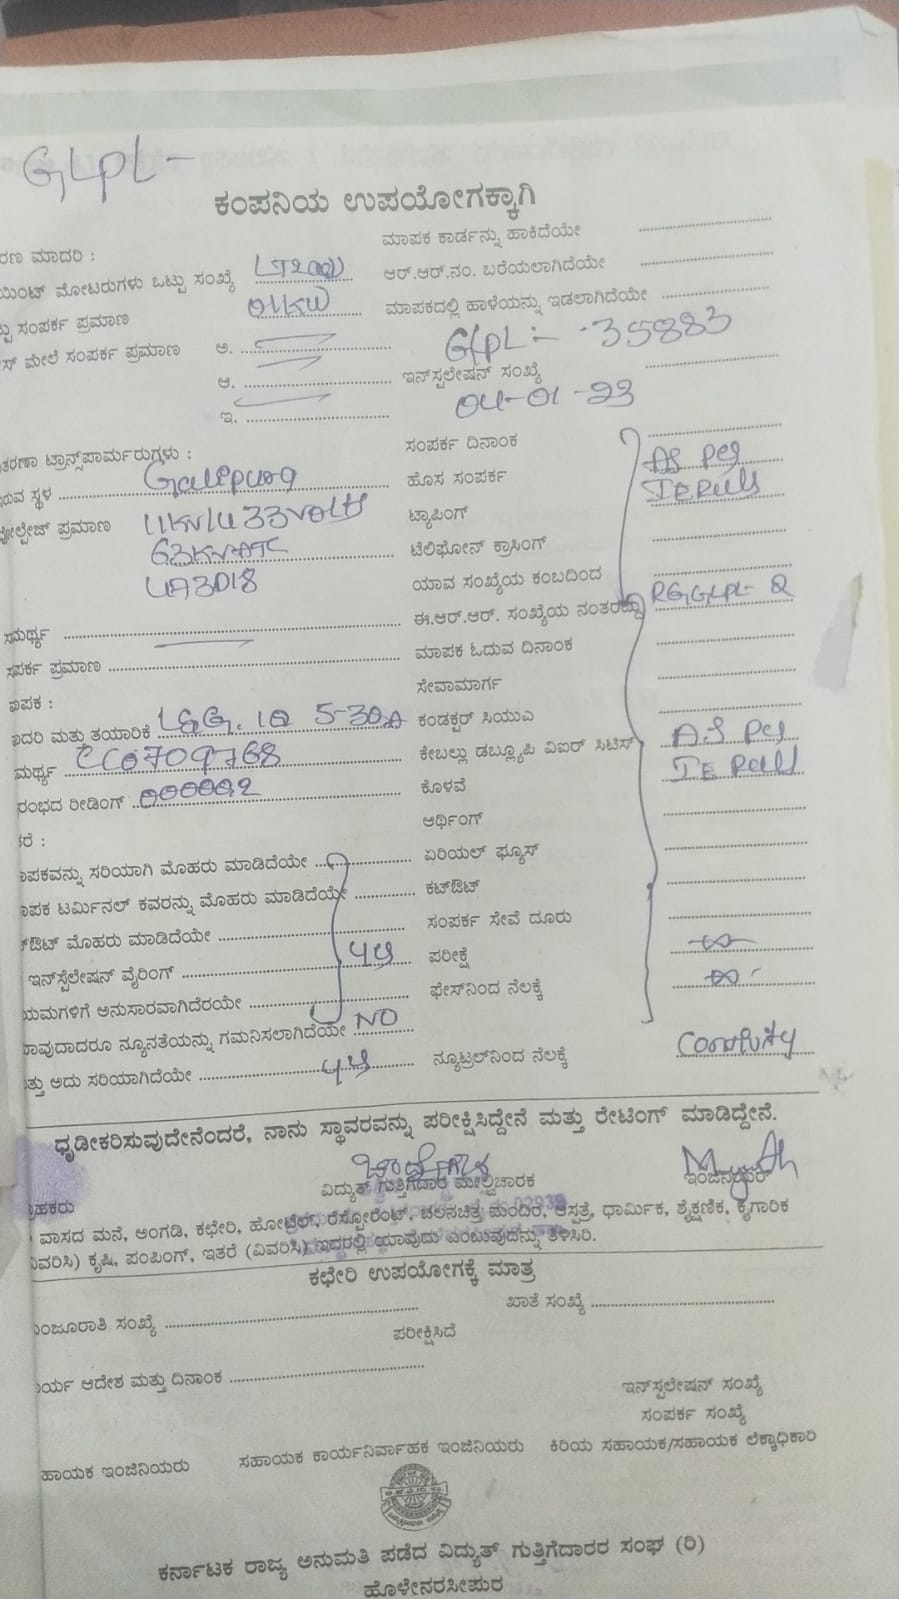 GLPL-
ಕಂಪನಿಯ ಉಪಯೋಗಕ್ಕಾಗಿ
ರಣ ಮಾದರಿ : ಮಾಪಕ ಕಾರ್ಡನ್ನು ಹಾಕಿದೆಯೇ
ಯಿಂಟ್ ಮೋಟರುಗಳು ಒಟ್ಟು ಸಂಖ್ಯೆ ಆರ್.ಆರ್.ನಂ. ಬರೆಯಲಾಗಿದೆಯೇ
ಟ್ಟು ಸಂಪರ್ಕ ಪ್ರಮಾಣ 04KW ಮಾಪಕದಲ್ಲಿ ಹಾಳೆಯನ್ನು ಇಡಲಾಗಿದೆಯೇ
ಸ್ ಮೇಲೆ ಸಂಪರ್ಕ ಪ್ರಮಾಣ ಅ. GLPL:- -35883
ಆ. ಇನ್‌ಸ್ಪಲೇಷನ್ ಸಂಖ್ಯೆ
ಇ. 04-01-23
ತರಣಾ ಟ್ರಾನ್ಸ್‌ಪಾರ್ಮರುಗಳು : ಸಂಪರ್ಕ ದಿನಾಂಕ
ರುವ ಸ್ಥಳ ಹೊಸ ಸಂಪರ್ಕ As per
ವೋಲ್ಟೇಜ್ ಪ್ರಮಾಣ 11KV/433VOLTS ಟ್ಯಾಪಿಂಗ್ IE Rules
63KVA ಟೆಲಿಫೋನ್ ಕ್ರಾಸಿಂಗ್
ಯಾವ ಸಂಖ್ಯೆಯ ಕಂಬದಿಂದ
ಸಮರ್ಥ್ಯ ಈ.ಆರ್.ಆರ್. ಸಂಖ್ಯೆಯ ನಂತರದ್ದು
ಸಪರ್ಕ ಪ್ರಮಾಣ ಮಾಪಕ ಓದುವ ದಿನಾಂಕ
ಾಪಕ : ಸೇವಾಮಾರ್ಗ
ಾದರಿ ಮತ್ತು ತಯಾರಿಕೆ L&G. 1Ø 5-30A ಕಂಡಕ್ಟರ್ ಸಿಯುಎ
ಮರ್ಥ್ಯ ಕೇಬಲ್ಲು ಡಬ್ಲ್ಯೂಪಿ ವಿಐರ್ ಸಿಟಿಸ್ AS per
ರಂಭದ ರೀಡಿಂಗ್ 000002 ಕೊಳವೆ IE Rules
ತರೆ : ಆರ್ಥಿಂಗ್
ಾಪಕವನ್ನು ಸರಿಯಾಗಿ ಮೊಹರು ಮಾಡಿದೆಯೇ ಏರಿಯಲ್ ಫ್ಯೂಸ್
ಾಪಕ ಟರ್ಮಿನಲ್ ಕವರನ್ನು ಮೊಹರು ಮಾಡಿದೆಯೇ ಕಟ್‌ಔಟ್
ಕ್‌ಔಟ್ ಮೊಹರು ಮಾಡಿದೆಯೇ ಸಂಪರ್ಕ ಸೇವೆ ದೂರು
ಇನ್‌ಸ್ಟೆಲೇಷನ್ ವೈರಿಂಗ್ ಪರೀಕ್ಷೆ ∞
ಯಮಗಳಿಗೆ ಅನುಸಾರವಾಗಿದೆರಯೇ ಫೇಸ್‌ನಿಂದ ನೆಲಕ್ಕೆ ∞
ಾವುದಾದರೂ ನ್ಯೂನತೆಯನ್ನು ಗಮನಿಸಲಾಗಿದೆಯೇ NO
ತ್ತು ಅದು ಸರಿಯಾಗಿದೆಯೇ ನ್ಯೂಟ್ರಲ್‌ನಿಂದ ನೆಲಕ್ಕೆ
ಧೃಡೀಕರಿಸುವುದೇನೆಂದರೆ, ನಾನು ಸ್ಥಾವರವನ್ನು ಪರೀಕ್ಷಿಸಿದ್ದೇನೆ ಮತ್ತು ರೇಟಿಂಗ್ ಮಾಡಿದ್ದೇನೆ.
ಾಹಕರು ವಿದ್ಯುತ್ ಗುತ್ತಿಗೆದಾರ ಮೇಲ್ವಿಚಾರಕ ಇಂಜಿನಿಯರ್
ವಾಸದ ಮನೆ, ಅಂಗಡಿ, ಕಛೇರಿ, ಹೋಟೆಲ್, ರೆಸ್ಟೋರೆಂಟ್, ಚಲನಚಿತ್ರ ಮಂದಿರ, ಆಸ್ಪತ್ರೆ, ಧಾರ್ಮಿಕ, ಶೈಕ್ಷಣಿಕ, ಕೈಗಾರಿಕ
ವಿವರಿಸಿ) ಕೃಷಿ, ಪಂಪಿಂಗ್, ಇತರೆ (ವಿವರಿಸಿ) ಇದರಲ್ಲಿ ಯಾವುದು ಎಂಬುವುದನ್ನು ತಿಳಿಸಿರಿ.
ಕಛೇರಿ ಉಪಯೋಗಕ್ಕೆ ಮಾತ್ರ
ಂಜೂರಾತಿ ಸಂಖ್ಯೆ ಖಾತೆ ಸಂಖ್ಯೆ
ಪರೀಕ್ಷಿಸಿದೆ
ರ್ಯ ಆದೇಶ ಮತ್ತು ದಿನಾಂಕ
ಇನ್‌ಸ್ಪಲೇಷನ್ ಸಂಖ್ಯೆ
ಸಂಪರ್ಕ ಸಂಖ್ಯೆ
ಹಾಯಕ ಇಂಜಿನಿಯರು ಸಹಾಯಕ ಕಾರ್ಯನಿರ್ವಾಹಕ ಇಂಜಿನಿಯರು ಕಿರಿಯ ಸಹಾಯಕ/ಸಹಾಯಕ ಲೆಕ್ಕಾಧಿಕಾರಿ
ಕರ್ನಾಟಕ ರಾಜ್ಯ ಅನುಮತಿ ಪಡೆದ ವಿದ್ಯುತ್ ಗುತ್ತಿಗೆದಾರರ ಸಂಘ (ರಿ)
ಹೊಳೇನರಸೀಪುರ